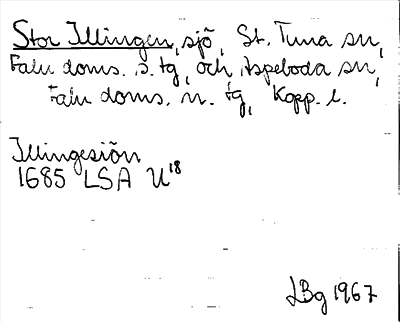 Stor Illingen, sjö, St. Tuna sn,
Falu doms. s. tg, och Aspeboda sn,
Falu doms. n. tg, Kopp. l.
Illingesiön
1685 LSA U18
LBg 1967